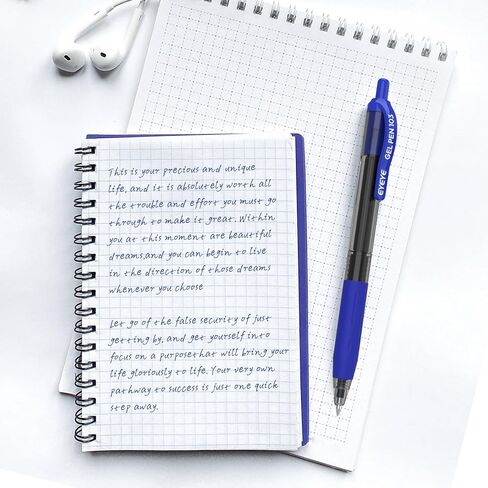 This is your precious and unique
life, and it is absolutely worth all
the trouble and effort you must go
through to make it great. Within
you at this moment are beautiful
dreams,and you can begin to live
in the direction of those dreams
whenever you choose
Let go of the false security of just
getting by, and get yourself into
focus on a purposethat will bring your
life gloriously to life. Your very own
pathway to success is just one quick
step away.
EYEYE GEL PEN 103